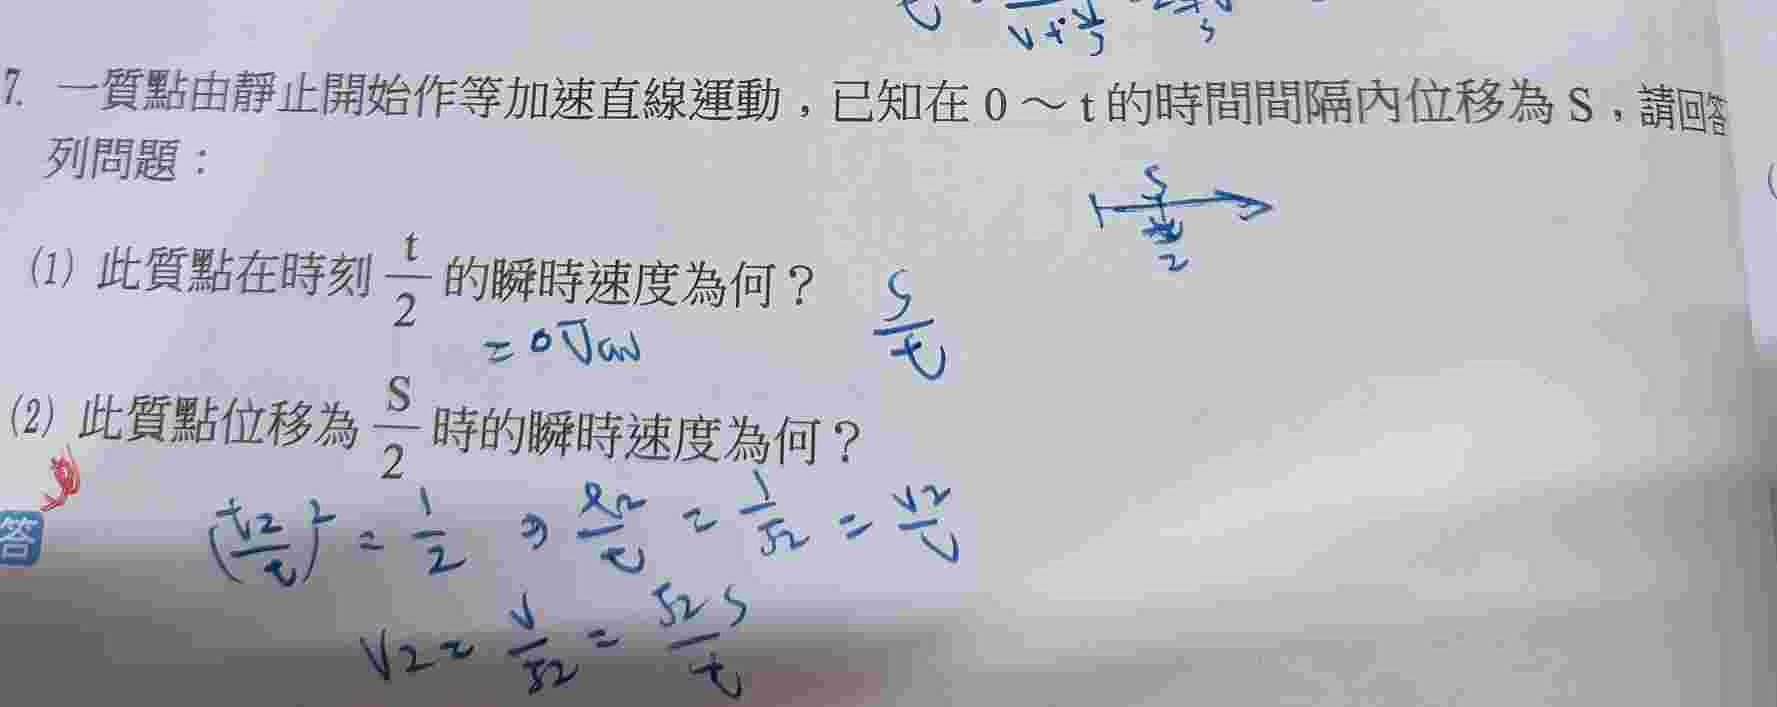 7. 一質點由靜止開始作等加速直線運動，已知在 0 ～ t 的時間間隔內位移為 S，請回答
列問題：
S
2
(1) 此質點在時刻 t/2 的瞬時速度為何？ S/t
(2) 此質點位移為 S/2 時的瞬時速度為何？
答
(t2/t)² = 1/2 ⇒ t2/t = 1/√2 = v2/v
v2 = v/√2 = √2 S/t